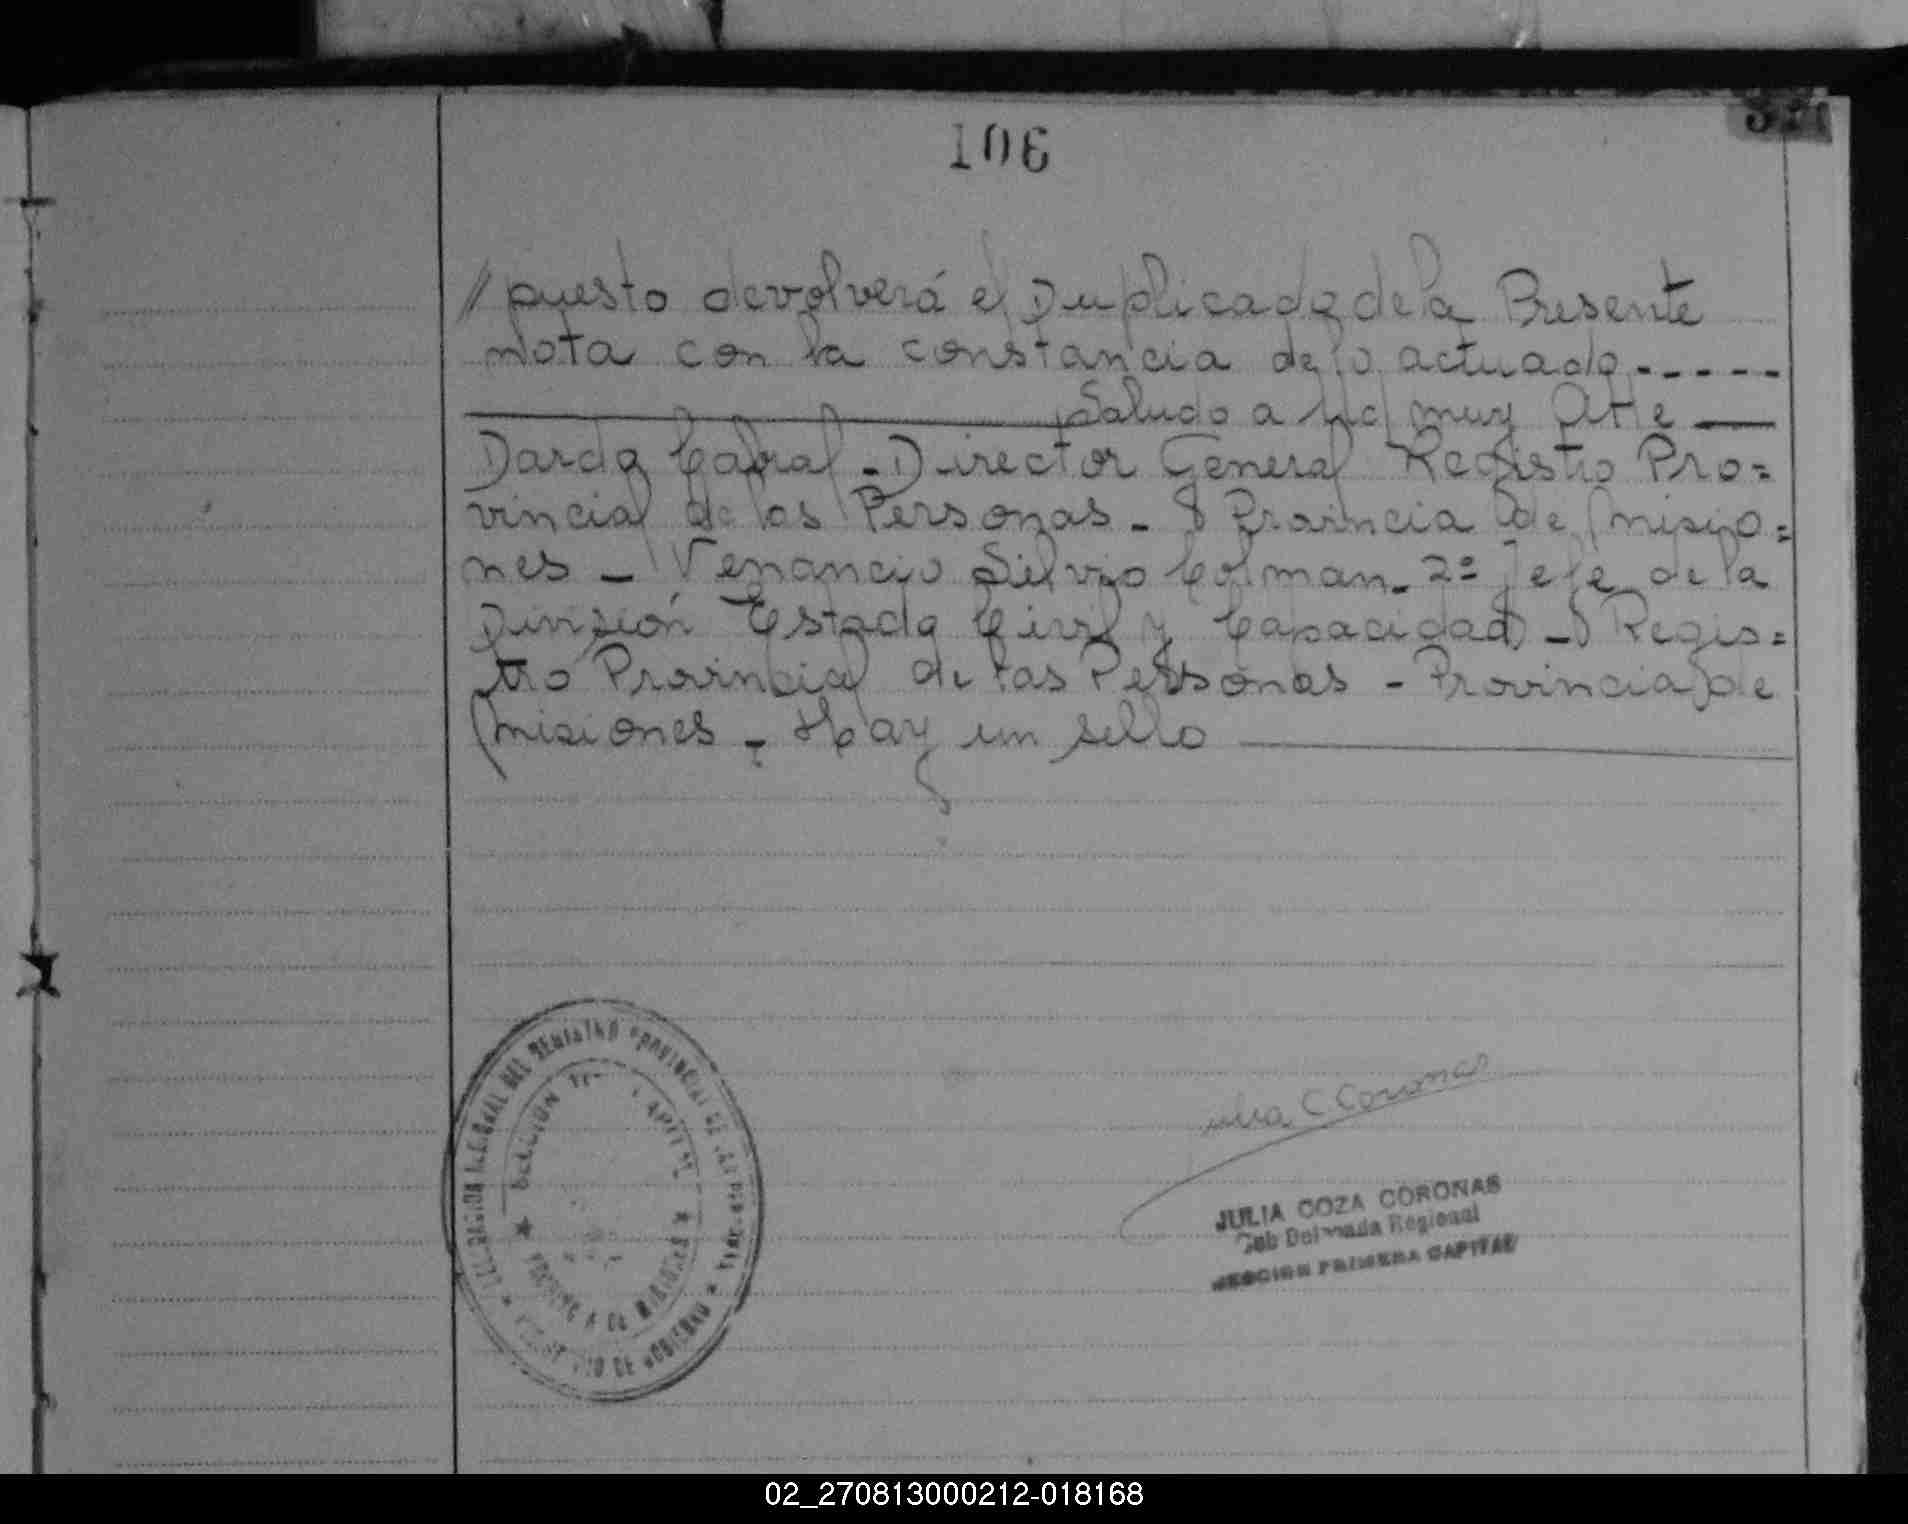 106
// puesto devolverá el Duplicado de la Presente
nota con la constancia de lo actuado.-----
Saludo a Ud muy Atte
Dardo Cabral - Director General Registro Pro=
vincial de las Personas - Provincia de Misio=
nes - Venancio Silvio Colman - 2º Jefe de la
División Estado Civil y Capacidad - Regis=
tro Provincial de las Personas - Provincia de
Misiones - Hay un sello
DELEGACION REGIONAL DEL REGISTRO PROVINCIAL DE LAS PERSONAS
SECCION CAPITAL
PROVINCIA DE MISIONES
DE GOBIERNO
Julia C Coronas
JULIA COZA CORONAS
Sub Delegada Regional
SECCION PRIMERA CAPITAL
02_270813000212-018168